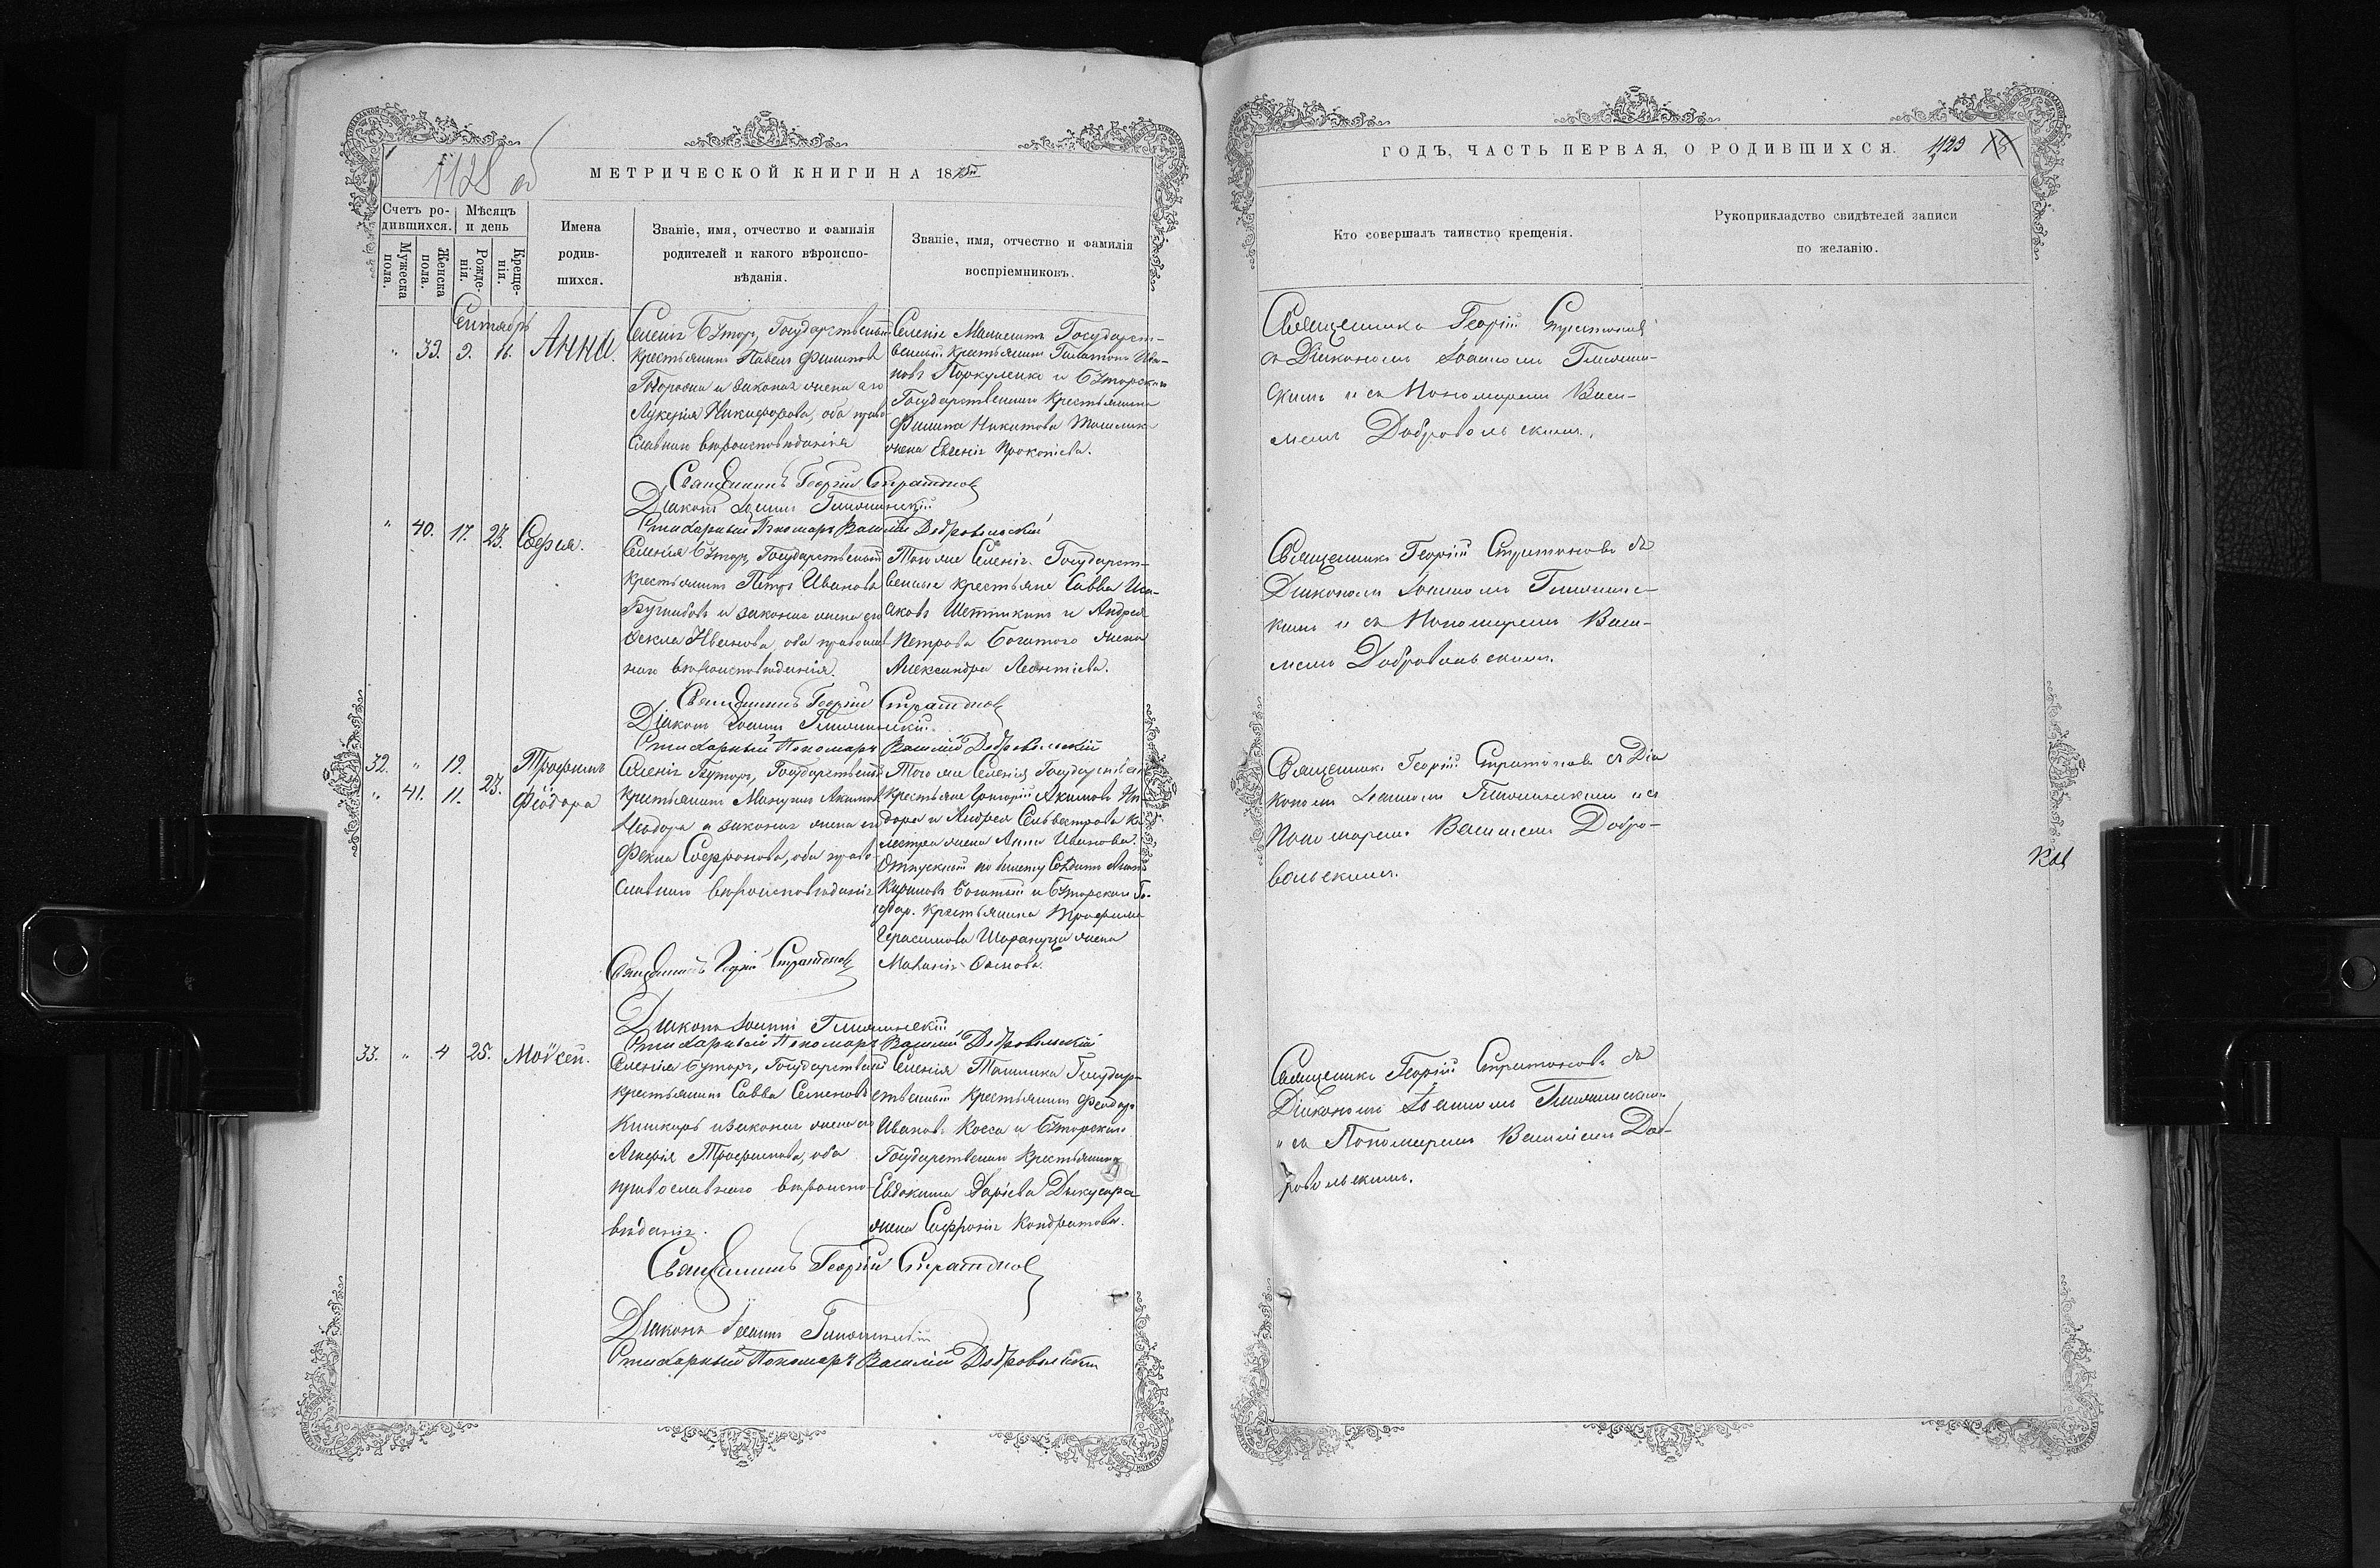 1128 об
МЕТРИЧЕСКОЙ КНИГИ НА 18
Счетъ ро-
дившихся.
Мѣсяцъ
и день
Мужеска
пола.
Женска
пола.
Рожде-
нія.
Креще-
нія.
Имена
родив-
шихся.
Званіе, имя, отчество и фамилія
родителей и какого вѣроиспо-
вѣданія.
Званіе, имя, отчество и фамилія
воспріемниковъ.
Сентябрь
" 39. 9. 16. Анна.
Селенія Буторъ, Государственный
крестьянинъ Павелъ Филиповъ
и законная жена его
Лукерія Никифорова, оба право-
славнаго вѣроисповѣданія
Селенія Государст-
венный крестьянинъ Ива-
новъ и Буторскаго
Государственнаго крестьянина
Филипа Никитова
жена Евгенія Прокопіева.
Священникъ Георгій Стратоновъ
Діаконъ Іоаннъ
Стихарный Пономарь Василій Добровольскій
" 40. 17. 23. Софія.
Селенія Буторъ, Государственный
крестьянинъ Петръ Ивановъ
и законная жена его
Ѳекла Иванова, оба православ-
наго вѣроисповѣданія.
Того же Селенія Государст-
венные крестьяне Савва Иса-
аковъ и Андрея
Петрова Богатого жена
Александра Леонтіева.
Священникъ Георгій Стратоновъ
Діаконъ Іоаннъ
Стихарный Пономарь Василій Добровольскій
32. " 19. Трофимъ
" 41. 11. 23. Феодора
Селенія Буторъ, Государственный
крестьянинъ Акимовъ
и законная жена его
Фекла Софронова, оба право-
славнаго вѣроисповѣданія
Того же Селенія Государственные
крестьяне Григорій Акимовъ
и Андрея Сильвестрова
жена Анна Иванова.
Отпускной по билету Солдатъ
Кириловъ Богатый и Буторскаго Го-
судар. крестьянина Трофима
Герасимова жена
Священникъ Георгій Стратоновъ
Діаконъ Іоаннъ
Стихарный Пономарь Василій Добровольскій
33. " 4 25. Моѵсей.
Селенія Буторъ, Государственный
крестьянинъ Савва Семеновъ
и законная жена его
Агафія Трофимова, оба
православнаго вѣроиспо-
вѣданія.
Селенія Ташлика Государ-
ственный крестьянинъ Феодоръ
Ивановъ Косса и Буторскаго
Государственнаго крестьянина
Евдокима
жена Софронія Кондратова.
Священникъ Георгій Стратоновъ
Діаконъ Іоаннъ
Стихарный Пономарь Василій Добровольскій
ГОДЪ, ЧАСТЬ ПЕРВАЯ, О РОДИВШИХСЯ. 1129
Кто совершалъ таинство крещенія.
Рукоприкладство свидѣтелей записи
по желанію.
Священникъ Георгій Стратоновъ
съ Діакономъ Іоанномъ
и съ Пономаремъ Васи-
ліемъ Добровольскимъ.
Священникъ Георгій Стратоновъ съ
Діакономъ Іоанномъ
и съ Пономаремъ Васи-
ліемъ Добровольскимъ.
Священникъ Георгій Стратоновъ съ Діа
кономъ Іоанномъ и съ
Пономаремъ Василіемъ Добро-
вольскимъ.
Священникъ Георгій Стратоновъ съ
Діакономъ Іоанномъ
и съ Пономаремъ Василіемъ Доб-
ровольскимъ.